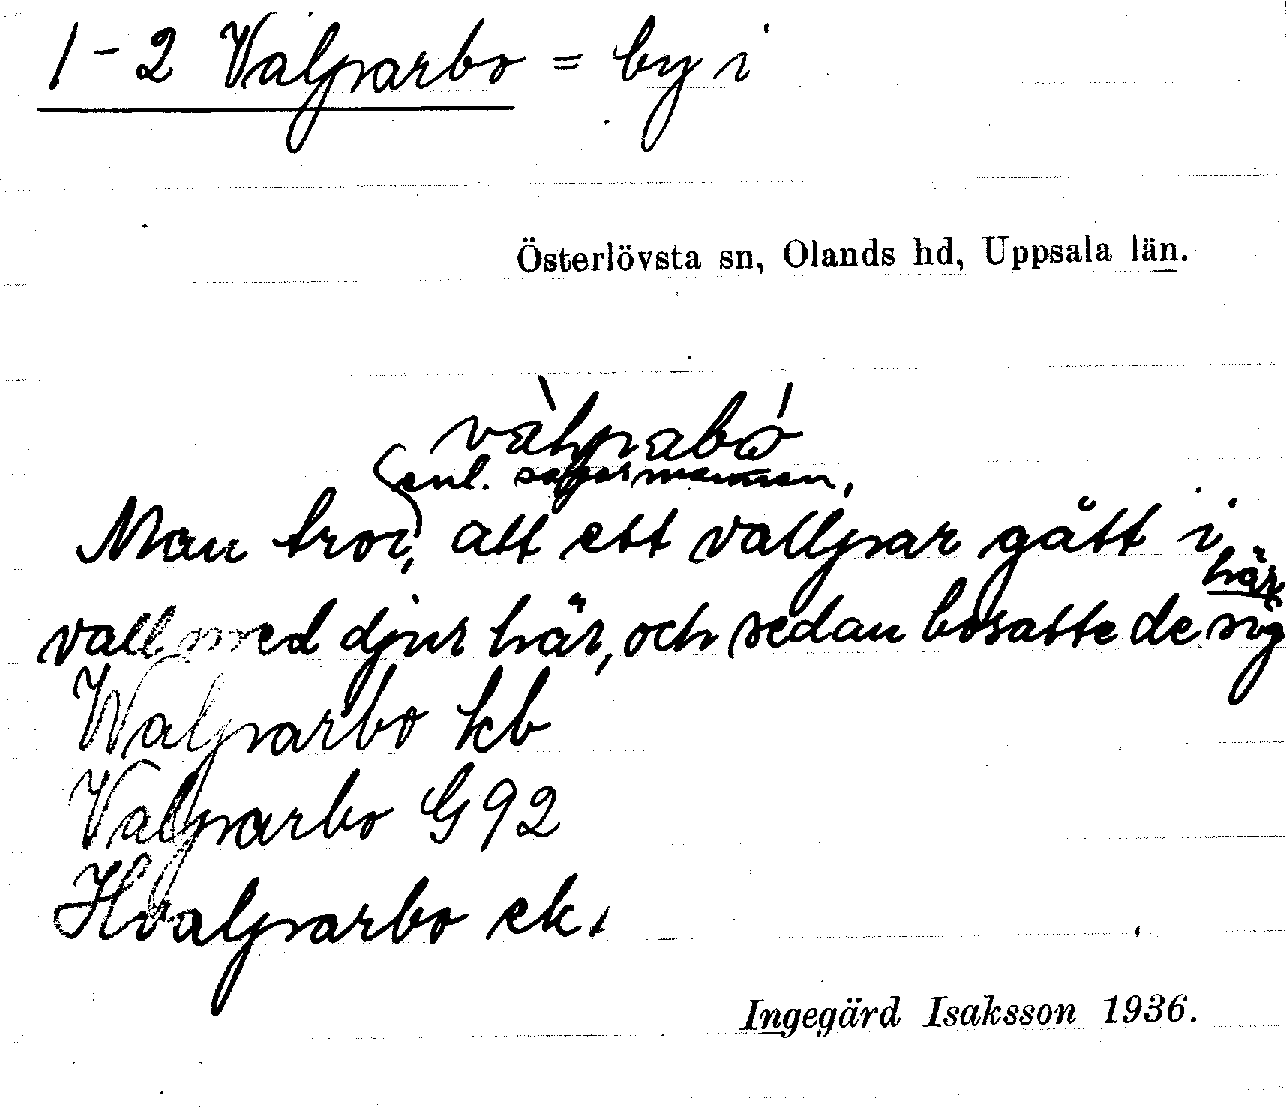 1-2 Valparbo = by i
Österlövsta sn, Olands hd, Uppsala län.
vàlpabó
(enl. sagesmannen,
Man tror, att ett vallpar gått i
vall med djur här, och sedan bosatte de sig
här
Walparbo kb
Valparbo G92
Hvalparbo ek.
Ingegärd Isaksson 1936.